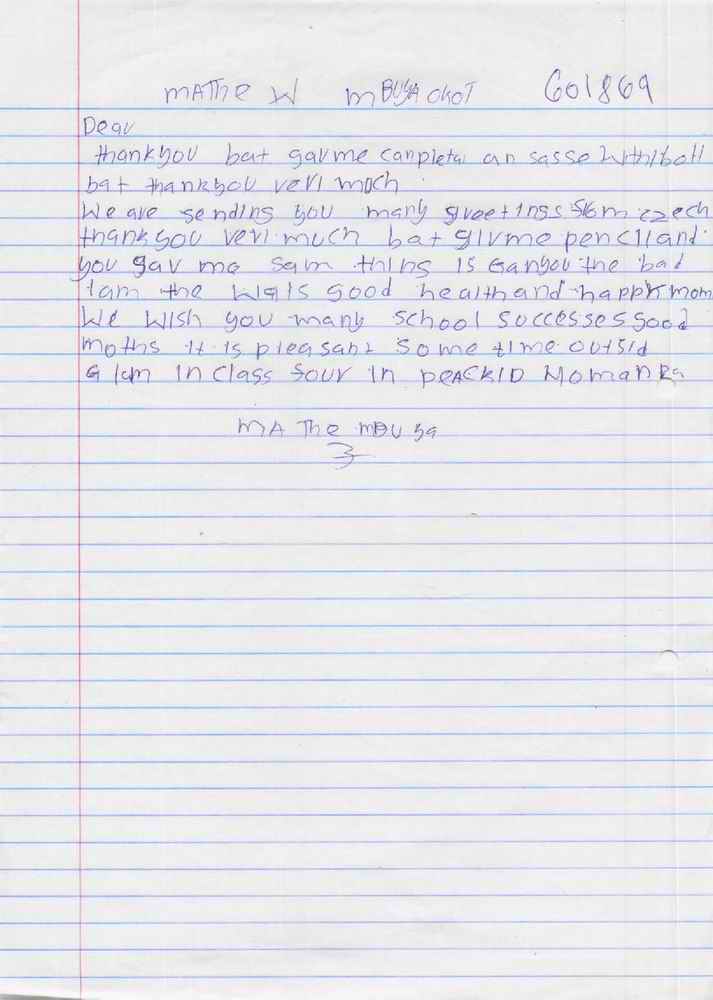 MATHE W MBUYA OKOT G01869
Dear
thankyou bat gavme canpletar an sasse
bat thankyou veri moch
We are sending you many greetings from czech
thankyou veri much bat givme pencil and
you gav me sam thing is the bad
Iam the good health and happy mom
We Wish you many school successes good
moths it is pleasant some time outsid
Iam in class four in PEACKID
MA The MBU ya